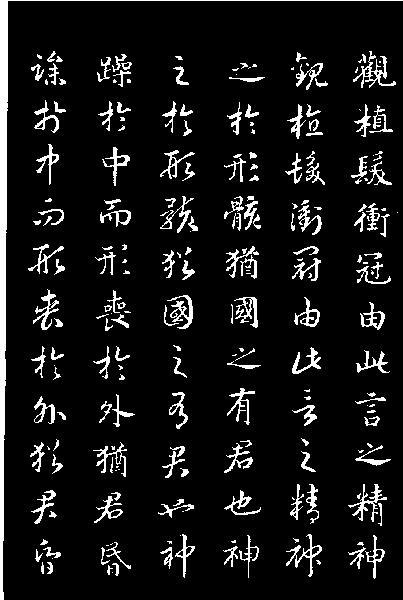 觀植髮衝冠由此言之精神
觀植髮衝冠由此言之精神
之於形骸猶國之有君也神
之於形骸猶國之有君也神
躁於中而形喪於外猶君昏
躁於中而形喪於外猶君昏